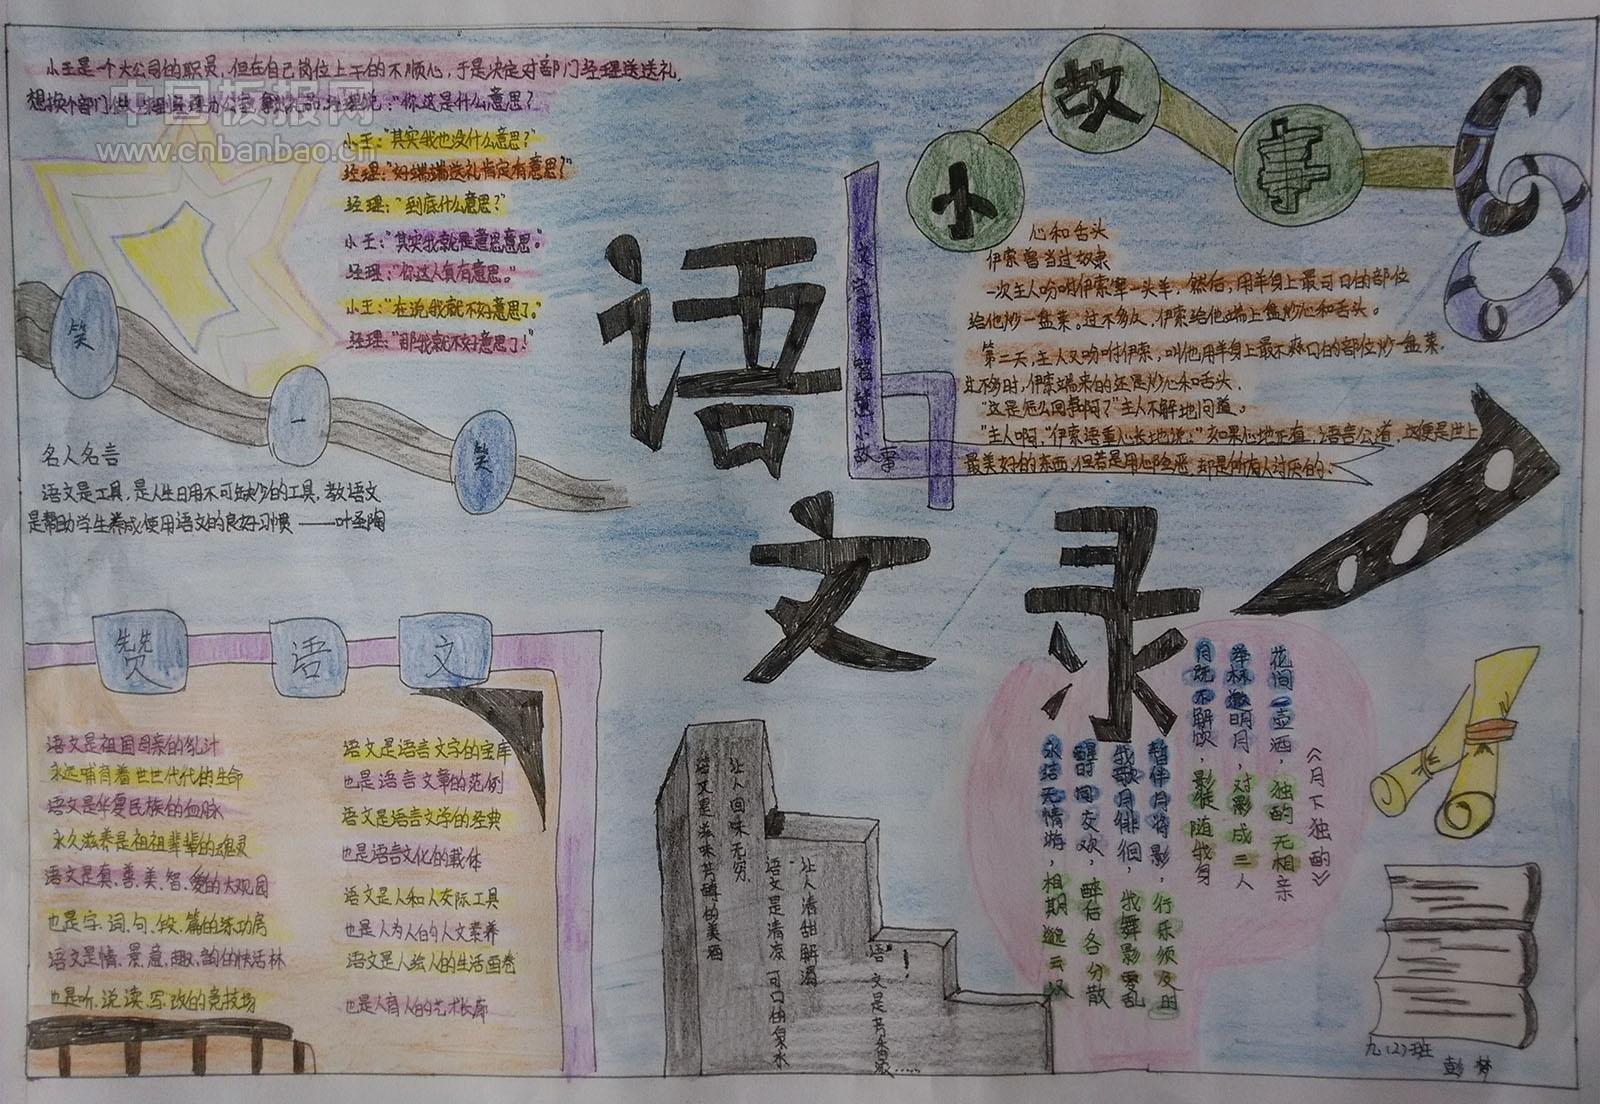 小王是一个大公司的职员，但在自己岗位上干的不顺心，于是决定对部门经理送送礼.
经理说："你这是什么意思？
小王："其实我也没什么意思？"
经理："好端端送礼肯定有意思？"
经理："到底什么意思？"
小王："其实我就是意思意思。"
经理："你这人真有意思。"
小王："在说我就不好意思了。"
经理："那我就不好意思了！
中国板报网
www.cnbanbao.cn
笑
一
笑
名人名言
语文是工具，是人生日用不可缺少的工具，教语文
是帮助学生养成使用语文的良好习惯 ——叶圣陶
语
文
录
小
故
事
智慧小
故事
心和舌头
伊索曾当过奴隶
一次主人吩咐伊索宰一头羊，然后，用羊身上最可口的部位
给他炒一盘菜。过不多久，伊索给他端上盘炒心和舌头。
第二天，主人又吩咐伊索，叫他用羊身上最不爽口的部位炒一盘菜。
过不多时，伊索端来的还是炒心和舌头.
"这是怎么回事啊？"主人不解地问道。
"主人啊，"伊索语重心长地说："如果心地正直，语言公道，这便是世上
最美好的东西，但若是用心险恶，却是所有人讨厌的.
赞
语
文
语文是祖国母亲的乳汁
永远哺育着世世代代的生命
语文是华夏民族的血脉
永久滋养是祖祖辈辈的魂灵
语文是真、善、美、智、爱的大观园
也是字、词、句、段、篇的练功房
语文是情、景、意、趣、韵的快活林
也是听、说、读、写、改的竞技场
语文是语言文字的宝库
也是语言文章的范例
语文是语言文学的经典
也是语言文化的载体
语文是人和人交际工具
也是人为人的人文素养
语文是人绘人的生活画卷
也是人育人的艺术长廊
语文是滋味芳醇的美酒
让人回味无穷.
语文是清凉可口的泉水
让人清甜解渴
语文是芳香浓……
《月下独酌》
花间一壶酒，独酌无相亲
举杯邀明月，对影成三人
月既不解饮，影徒随我身
暂伴月将影，行乐须及时
我歌月徘徊，我舞影零乱
醒时同交欢，醉后各分散
永结无情游，相期邈云汉
九（2）班
彭梦